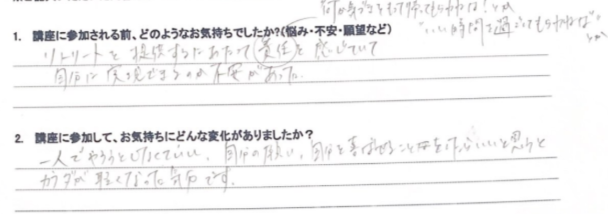 何か気づきともって帰ってもらわねば!とか
1. 講座に参加される前、どのようなお気持ちでしたか?(悩み・不安・願望など)
"いい時間を過ごしてもらわねば"とか
リトリートを提供するにあたって責任を感じていて
自分に実現できるのか不安があった。
2. 講座に参加して、お気持ちにどんな変化がありましたか?
一人でやろうとしなくていい、自分の願い、自分を喜ばせること
いいと思うと
カラダが軽くなった気分です。